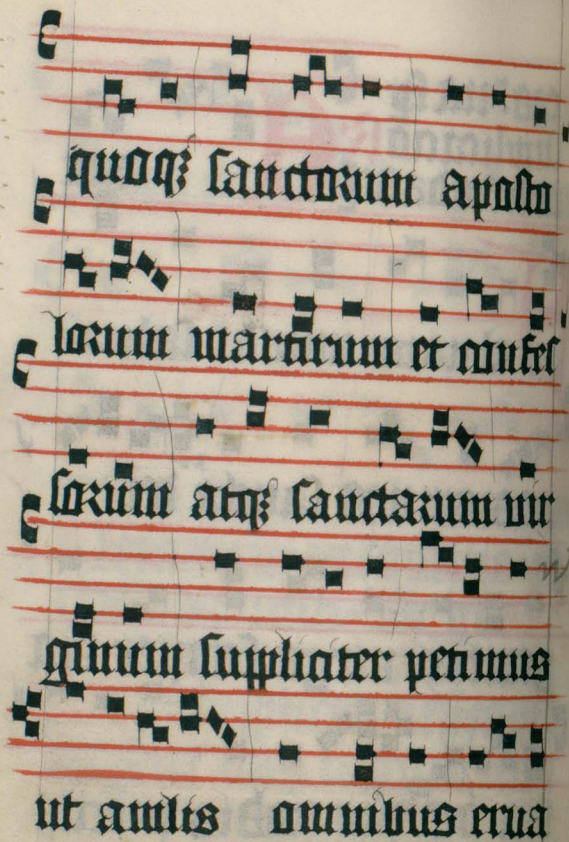 quoqꝫ sanctorum aposto
lorum martirum et confes
sorum atqꝫ sanctarum vir
ginum suppliciter petimus
ut a milis omnibus erua